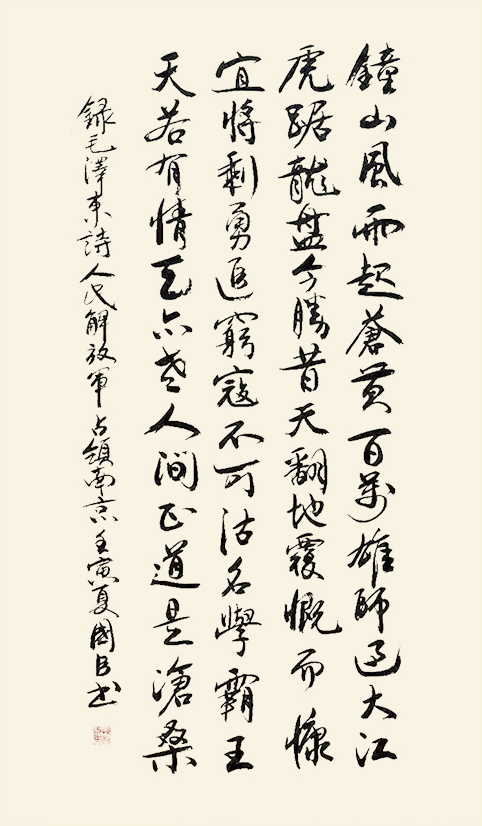 鐘山風雨起蒼黃百萬雄師過大江
虎踞龍盤今勝昔天翻地覆慨而慷
宜將剩勇追窮寇不可沽名學霸王
天若有情天亦老人間正道是滄桑
録毛澤東詩人民解放軍占領南京壬寅夏國臣書